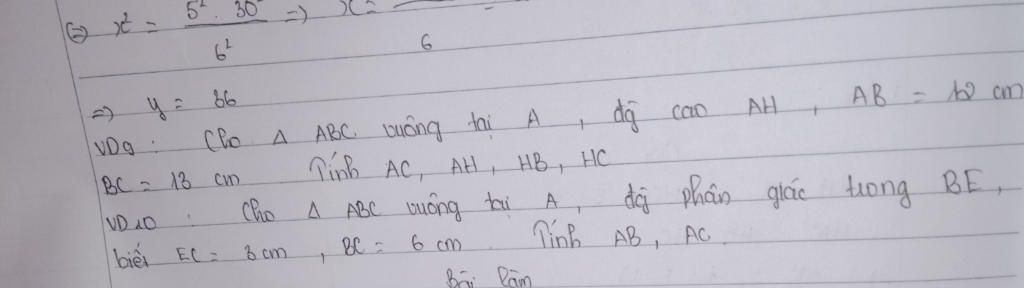 ⇔ x² = 5² . 30² / 6² ⇒ x = / 6
⇒ y = 36
VD9 : Cho Δ ABC vuông tại A , độ cao AH , AB = 12 cm
BC = 13 cm Tính AC, AH, HB, HC
VD10 : Cho Δ ABC vuông tại A, độ phân giác trong BE,
biết EC = 3 cm , BC = 6 cm Tính AB, AC.
Bài làm